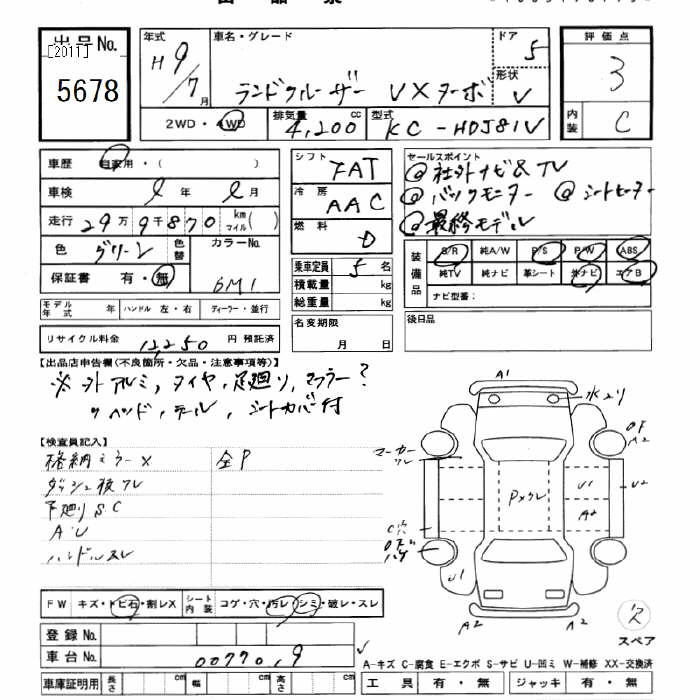 [2011]
出品No.
5678
年式
H 9/7 月
車名・グレード
ランドクルーザー VXターボ
ドア 5
形状 V
2WD・4WD
排気量 4,200 cc
型式 KC-HDJ81V
評価点
3
内装 C
車歴 自家用・( )
車検 年 月
走行 29万9千870 km マイル( )
色 グリーン
色替
カラーNo. 6M1
保証書 有・無
シフト FAT
冷房 AAC
燃料 D
乗車定員 5 名
積載量 kg
総重量 kg
名変期限
月 日
セールスポイント
@社外ナビ&TV
@バックモニター @シートヒーター
@最終モデル
装備品
S/R 純A/W P/S P/W ABS
純TV 純ナビ 革シート 外ナビ エアB
ナビ型番:
後日品
モデル年式 年 ハンドル 左・右 ディーラー・並行
リサイクル料金 12,250 円 預託済
【出品店申告欄(不良箇所・欠品・注意事項等)】
※外アルミ,タイヤ,足廻り,マフラー?
〃ヘッド,テール,シートカバー付
【検査員記入】
格納ミラーX 全P
ダッシュ板ワレ
下廻りS.C
A・U
ハンドルスレ
A1
水入り
マーカーワレ
OF
A2
PXクレ
U1
U2
A2
C穴
U1
A2
A2
スペア
FW キズ・トビ石・割レX
シート内装 コゲ・穴・汚レ・シミ・破レ・スレ
登録No.
車台No. 00770.9
A-キズ C-腐食 E-エクボ S-サビ U-凹ミ W-補修 XX-交換済
車庫証明用 長さ cm 幅 cm 高さ cm
工具 有・無 ジャッキ 有・無